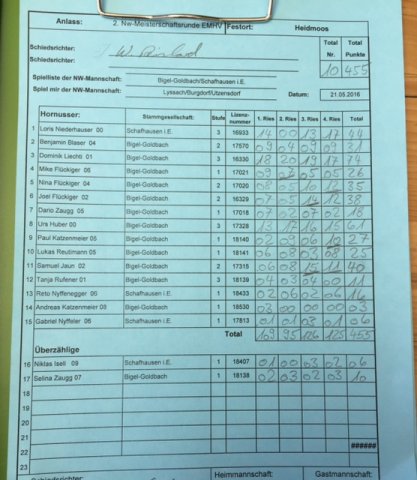 Anlass: 2. Nw-Meisterschaftsrunde EMHV Festort: Heidmoos
Schiedsrichter: Total Total
Schiedsrichter: Nr. Punkte
10 455
Spielliste der NW-Mannschaft: Bigel-Goldbach/Schafhausen i.E.
Spiel mir der NW-Mannschaft: Lyssach/Burgdorf/Utzensdorf Datum: 21.05.2016
Hornusser: Stammgesellschaft: Stufe Lizenznummer 1. Ries 2. Ries 3. Ries 4. Ries Total
1 Loris Niederhauser 00 Schafhausen i.E. 3 16933 14 00 13 17 44
2 Benjamin Blaser 04 Bigel-Goldbach 2 17570 09 04 09 09 31
3 Dominik Liechti 01 Bigel-Goldbach 3 16330 18 20 19 17 74
4 Mike Flückiger 06 Bigel-Goldbach 1 17021 09 07 05 05 26
5 Nina Flückiger 04 Bigel-Goldbach 2 17020 08 05 10 12 35
6 Joel Flückiger 02 Bigel-Goldbach 2 16329 07 05 14 12 38
7 Dario Zaugg 05 Bigel-Goldbach 1 17018 07 02 07 02 18
8 Urs Huber 00 Bigel-Goldbach 3 17328 13 17 16 15 61
9 Paul Katzenmeier 05 Bigel-Goldbach 1 18140 02 09 06 10 27
10 Lukas Reutimann 05 Bigel-Goldbach 1 18141 06 08 03 08 25
11 Samuel Jaun 02 Bigel-Goldbach 2 17315 06 08 15 11 40
12 Tanja Rufener 01 Bigel-Goldbach 3 18139 04 03 04 00 11
13 Reto Nyffenegger 06 Schafhausen i.E. 1 18433 02 06 02 06 16
14 Andreas Katzenmeier 08 Bigel-Goldbach 1 18530 03 00 00 00 03
15 Gabriel Nyffeler 06 Schafhausen i.E. 1 17813 01 01 03 01 06
Total 109 95 126 125 455
Überzählige
16 Niklas Iseli 09 Schafhausen i.E. 1 18407 01 00 03 02 06
17 Selina Zaugg 07 Bigel-Goldbach 1 18138 02 03 02 03 10
18
19
20
21
22 ######
23
Schiedsrichter: Heimmannschaft: Gastmannschaft: